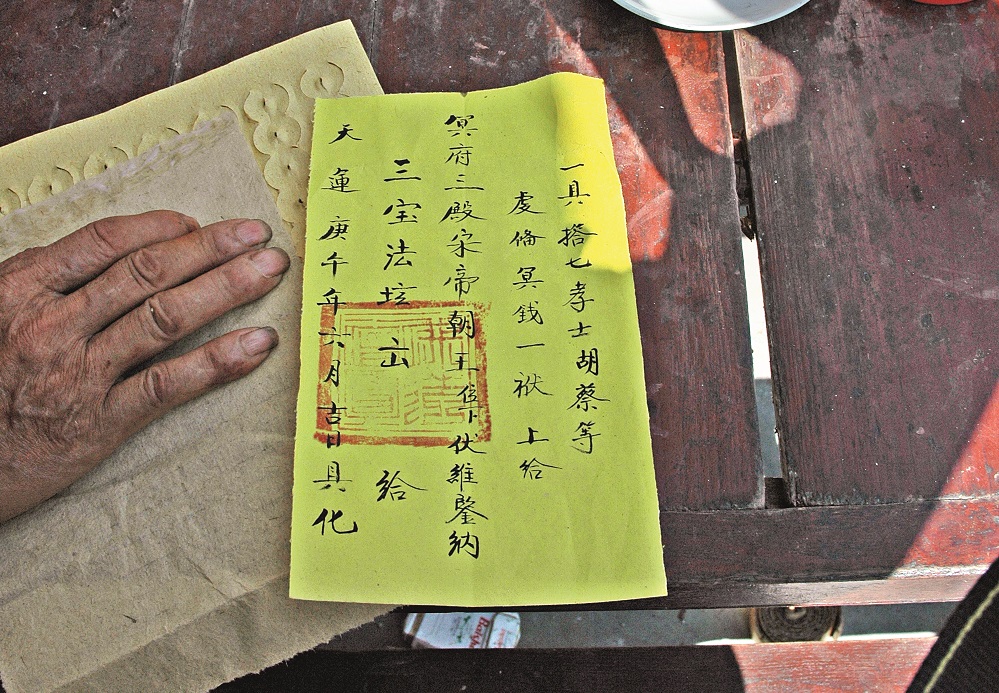 一具搭七孝士胡蔡等
虔俻冥錢一袱上給
冥府三殿宋帝朝王
伏維鑒納
三宝法坛
給
天運庚午年六月吉日具化